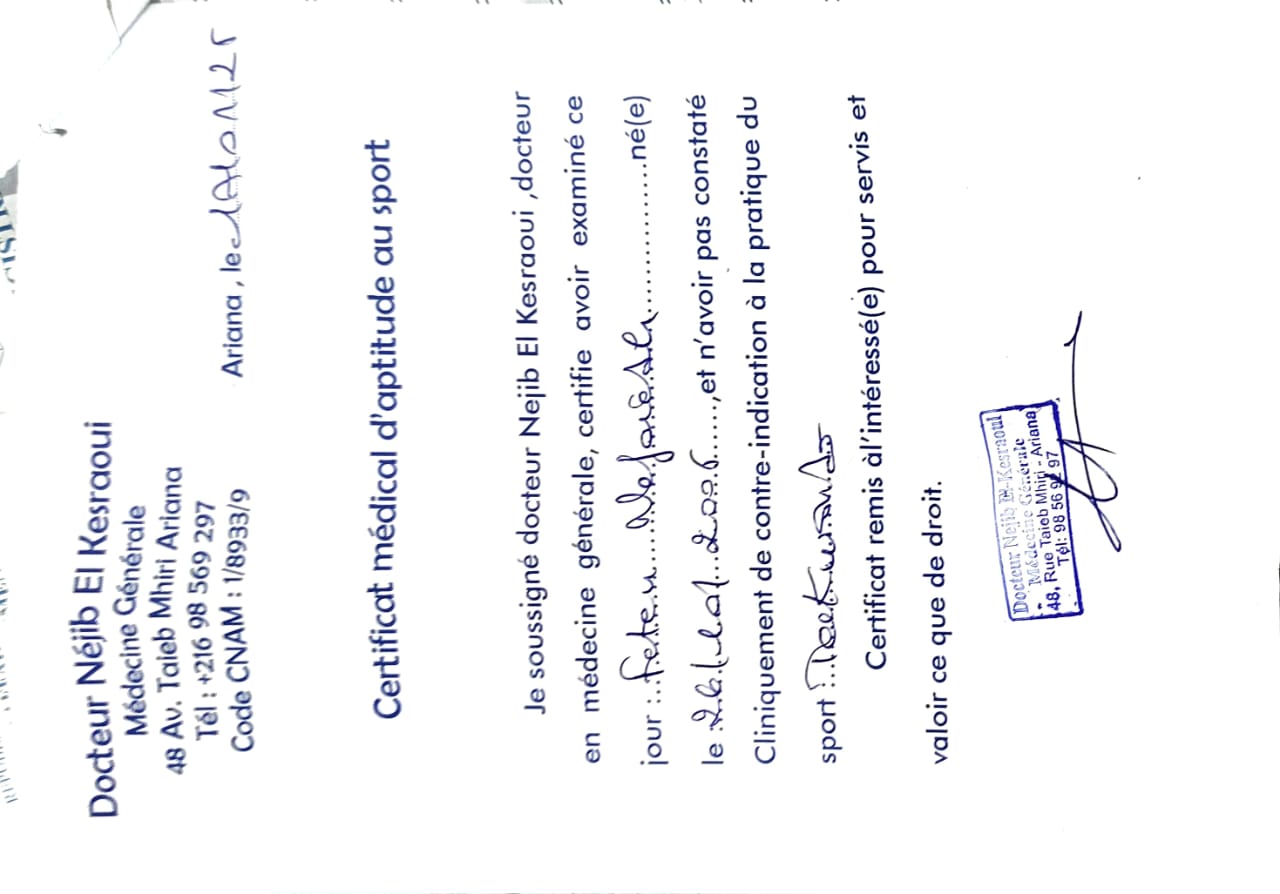 Docteur Néjib El Kesraoui
Médecine Générale
48 Av. Taieb Mhiri Ariana
Tél : +216 98 569 297
Code CNAM : 1/8933/9
Ariana, le
Certificat médical d'aptitude au sport
Je soussigné docteur Nejib El Kesraoui ,docteur
en médecine générale, certifie avoir examiné ce
jour : Feten ........................né(e)
le : ...2006......,et n'avoir pas constaté
Cliniquement de contre-indication à la pratique du
sport : Taekwondo
Certificat remis àl'intéressé(e) pour servis et
valoir ce que de droit.
Docteur Nejib El-Kesraoui
Médecine Générale
48, Rue Taieb Mhiri - Ariana
Tél: 98 56 92 97